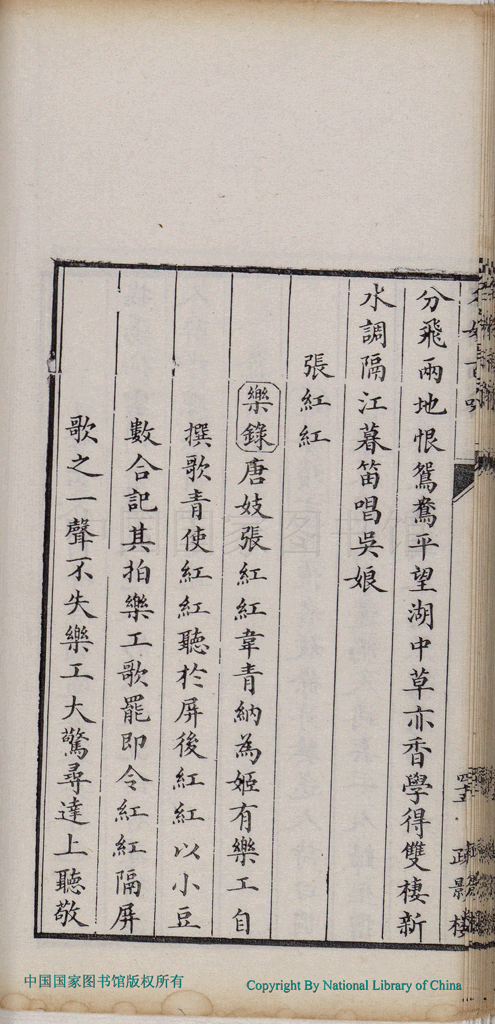 分飛兩地恨鴛鴦平望湖中草亦香學得雙棲新
水調隔江暮笛唱吳娘
張紅紅
樂錄唐妓張紅紅韋青納為姬有樂工自
撰歌青使紅紅聽於屏後紅紅以小豆
數合記其拍樂工歌罷即令紅紅隔屏
歌之一聲不失樂工大驚尋達上聽敬
中国国家图书馆版权所有
Copyright By National Library of China